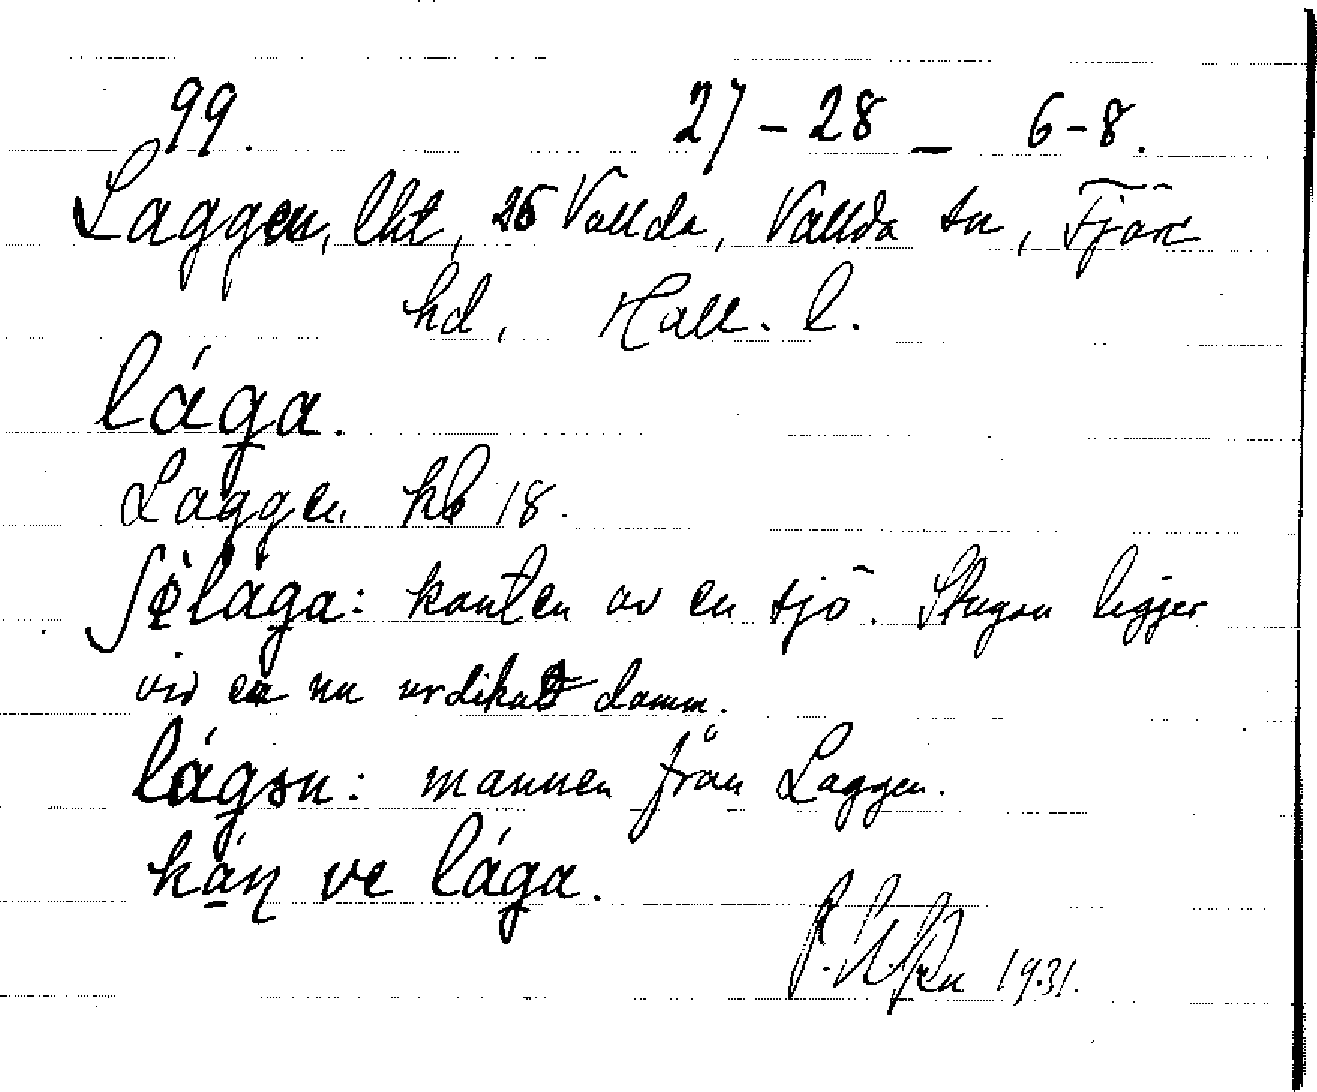 99. 27-28 - 6-8.
Laggen, lht, 26 Vallda, Vallda sn, Fjäre
hd, Hall. l.
lága.
Laggen hb 18.
ʃø̀lága: kanten av en sjö. Stugan ligger
vid en nu urdikat damm.
lágən: mannen från Laggen.
kán̡ ve lága.
1931.